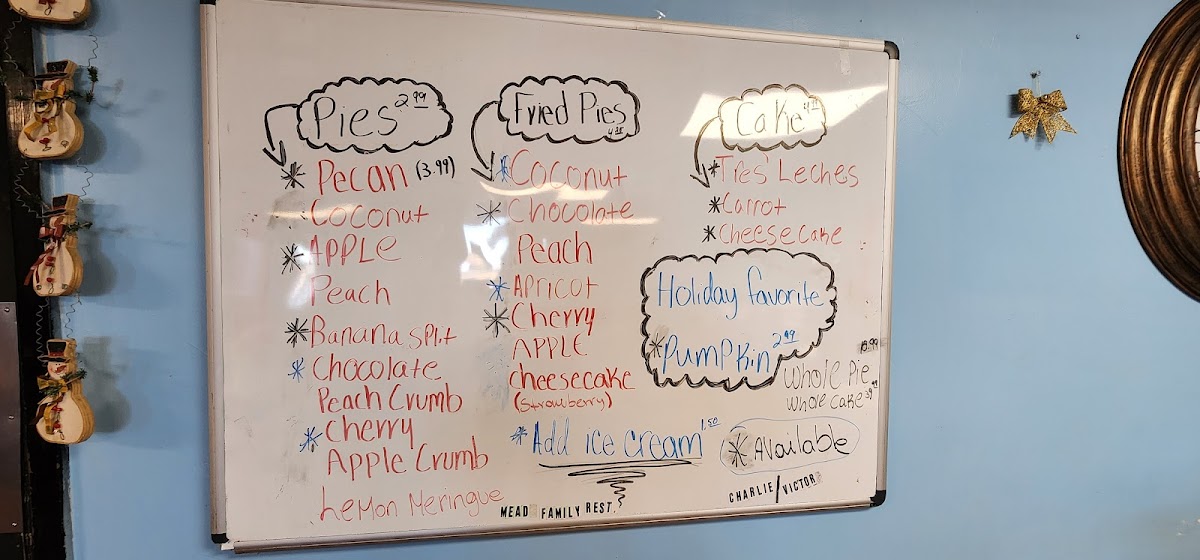 Pies 2.99
* Pecan (3.99)
Coconut
* APPLE
Peach
* Banana split
* Chocolate
Peach Crumb
* Cherry
Apple Crumb
Lemon Meringue
Fried Pies
* Coconut
* Chocolate
Peach
* Apricot
* Cherry
APPLE
cheesecake
(strawberry)
* Add ice cream 1.50
Cake
* Tres Leches
* Carrot
* Cheesecake
Holiday favorite
* Pumpkin 2.99
Whole Pie
Whole Cake
* Available
MEAD FAMILY REST.
CHARLIE/VICTOR